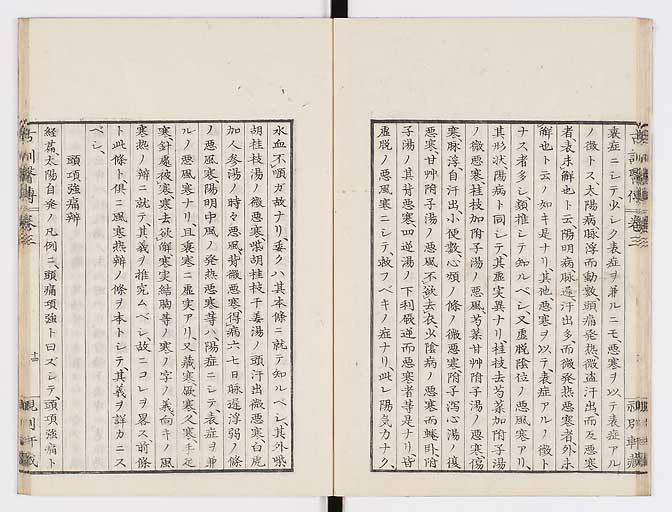 裏症ニシテ少シク表症ヲ兼ルニモ悪寒ヲ以テ表症アル
ノ徴トス太陽病脉浮而動數、頭痛発熱、微盗汗出、而反悪寒
者、表未解也ト云陽明病脉遅汗出多而微発熱悪寒者、外未
解也ト云ノ如キ是ナリ其他悪寒ヲ以テ表症アルノ徴ト
ナス者多シ類推シテ知ルベシ、又虚脱陰位ノ悪風寒アリ、
其形状陽病ト同シテ、其虚実異ナリ、桂枝去芍薬加附子湯
ノ微悪寒桂枝加附子湯ノ悪風芍薬甘艸附子湯ノ悪寒傷
寒脉浮自汗出小便數、心煩ノ條ノ微悪寒附子泻心湯ノ復
悪寒、甘艸附子湯ノ悪風不欲去衣、少陰病ノ悪寒而蜷卧附
子湯ノ其背悪寒四逆湯ノ下利厥逆而悪寒者等是ナリ皆
虚脱ノ悪風寒ニシテ、故フベキノ症ナリ、此レ陽気カナク、
古訓醫傳 巻三
水血不順ガ故ナリ、委クハ其本條ニ就テ知ルベシ、其外柴
胡桂枝湯ノ微悪寒柴胡桂枝干姜湯ノ頭汗出微悪寒白虎
加人参湯ノ時々悪風、背微悪寒、得病六七日脉遅浮弱ノ條
ノ悪風寒陽明中風ノ発熱悪寒等ハ陽症ニシテ表症ヲ兼
ルノ悪風寒ナリ、且裏寒ニ虚実アリ、又藏寒厥寒久寒手足
寒、針處被寒、寒去欲解寒実結胸等ノ寒ノ字ノ義、向キノ風
寒熱ノ辨ニ就テ其義ヲ推究ムベシ、故ニコレヲ畧ス前條
ト此條ト、倶ニ風寒熱辨ノ條ヲ本トシテ、其義ヲ詳カニス
ベシ、
頭項強痛辨
経篇、太陽自発ノ凡例ニ、頭痛項強ト曰ズシテ、頭項強痛ト
古訓醫傳 巻三